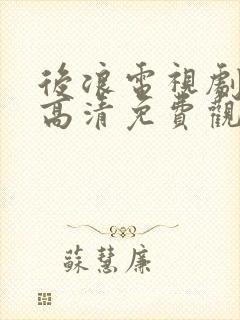 後浪電視劇
高清免費觀
蘇慧廉